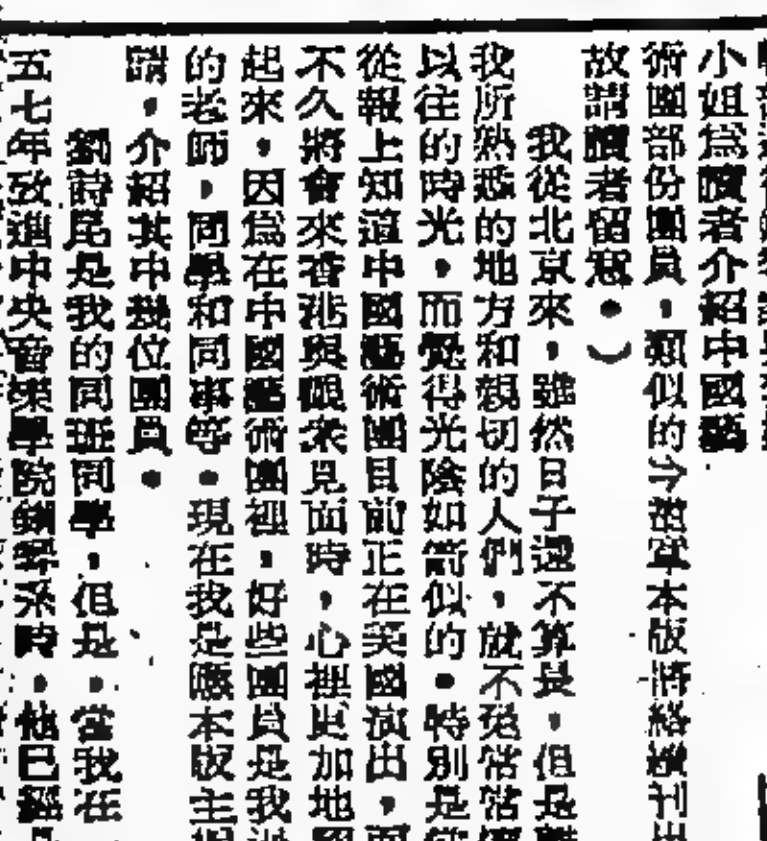 小姐爲讀者介紹中國藝
術團部份團員,類似的介紹當本版將絡續刊出
故請讀者留意。)
我從北京來,雖然日子還不算長,但是離
我所熟悉的地方和親切的人們,就不免常常懷
以往的時光,而覺得光陰如箭似的。特別是從
從報上知道中國藝術團目前正在英國演出,而
不久將會來香港與觀衆見面時,心裡更加地
起來,因爲在中國藝術團裡,好些團員是我
的老師,同學和同事等。現在我是應本版主
請,介紹其中幾位團員。
劉詩昆是我的同班同學,但是,當我在
五七年攷進中央音樂學院鋼琴系時,他已經